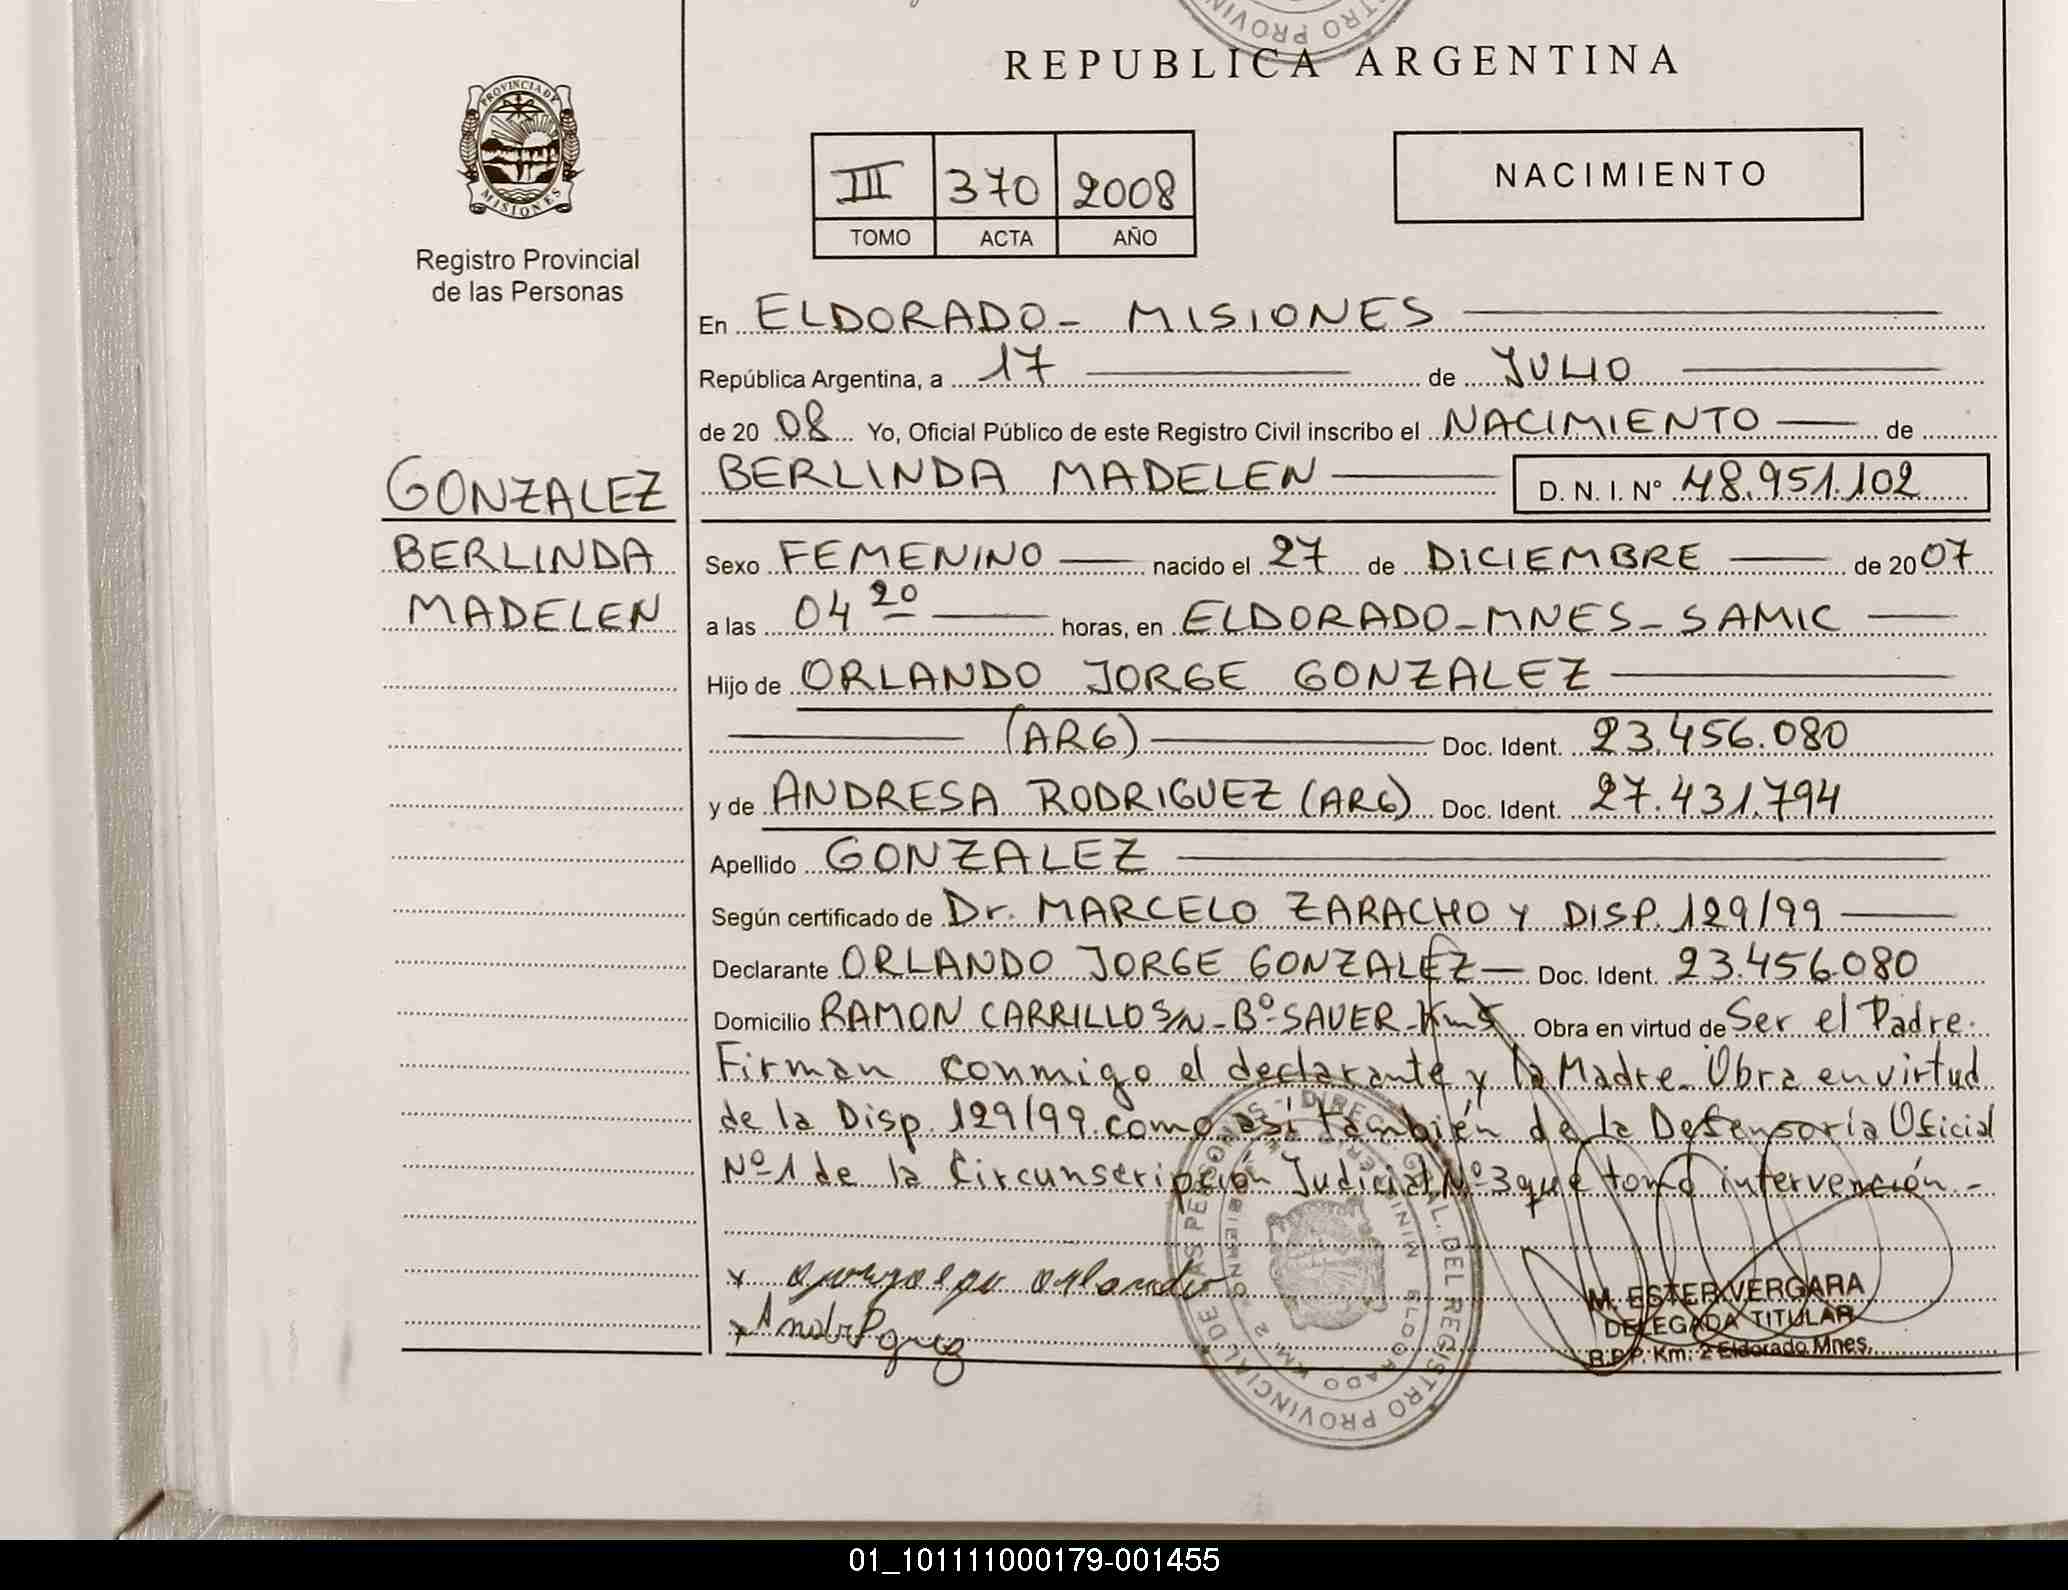 REPUBLICA ARGENTINA
PROVINCIA DE
MISIONES
Registro Provincial
de las Personas
III 370 2008
TOMO ACTA AÑO
NACIMIENTO
En ELDORADO - MISIONES
República Argentina, a 17 de JULIO
de 2008 Yo, Oficial Público de este Registro Civil inscribo el NACIMIENTO de
GONZALEZ
BERLINDA
MADELEN
BERLINDA MADELEN D. N. I. Nº 48.951.102
Sexo FEMENINO nacido el 27 de DICIEMBRE de 2007
a las 04 20 horas, en ELDORADO-MNES-SAMIC
Hijo de ORLANDO JORGE GONZALEZ
(ARG) Doc. Ident. 23.456.080
y de ANDRESA RODRIGUEZ (ARG) Doc. Ident. 27.431.794
Apellido GONZALEZ
Según certificado de Dr. MARCELO ZARACHO Y DISP. 129/99
Declarante ORLANDO JORGE GONZALEZ Doc. Ident. 23.456.080
Domicilio RAMON CARRILLO S/N-Bº SAUER-Km5 Obra en virtud de Ser el Padre.
Firman conmigo el declarante y la Madre. Obra en virtud
de la Disp. 129/99 como así también de la Defensoría Oficial
Nº 1 de la Circunscripción Judicial Nº 3 que tomó intervención.-
x orlando
x
M. ESTER VERGARA
DELEGADA TITULAR
R.P.P. Km: 2 Eldorado Mnes.
DIREC. GRAL. DEL REGISTRO PROVINCIAL DE LAS PERSONAS
ELDORADO KM 2
01_101111000179-001455